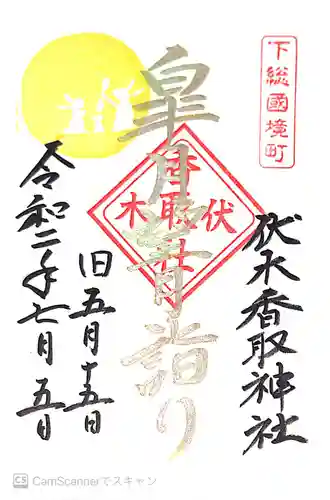 下総國境町
伏木香取神社
皐月望月詣り
伏木
香取
社
旧五月十五日
令和二年七月五日
CS CamScannerでスキャン